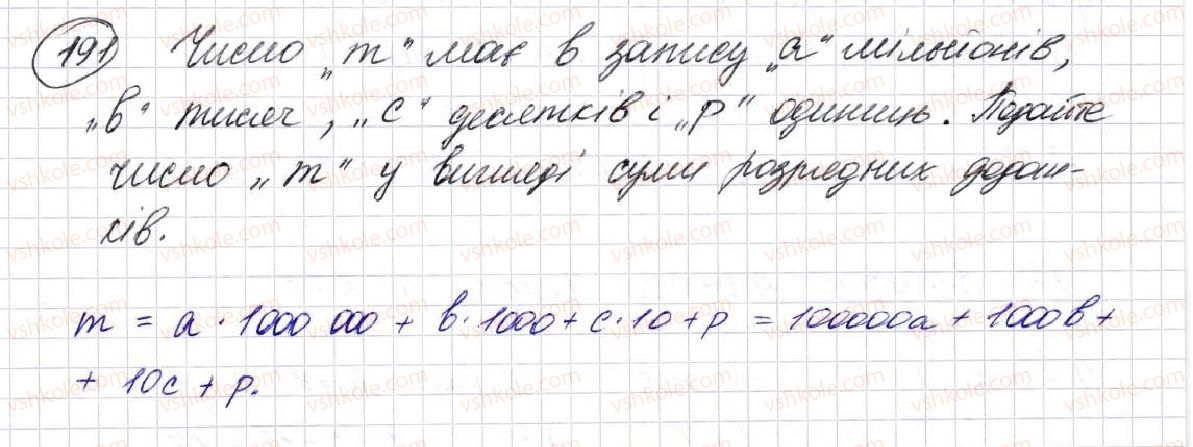 191 Число „m" має в запису „a" мільйонів,
„в" тисяч, „c" десятків і „p" одиниць. Подайте
число „m" у вигляді суми розрядних додан-
ків.
m = a · 1000 000 + в · 1000 + c · 10 + p = 1000000a + 1000в +
+ 10c + p.